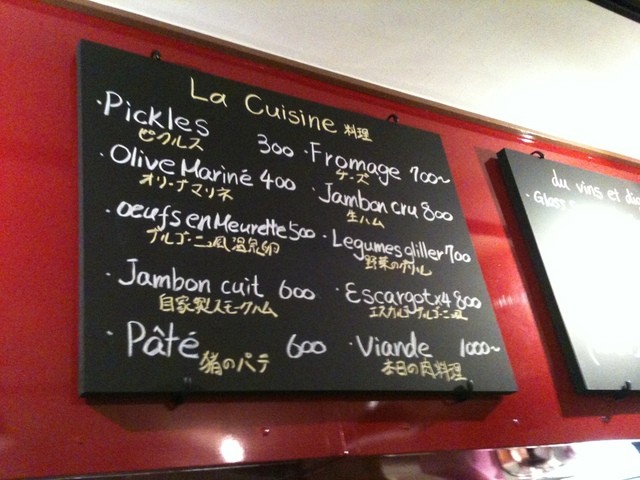 La Cuisine 料理
・Pickles 300
ピクルス
・Olive Mariné 400
オリーブマリネ
・oeufs en Meurette 500
ブルゴーニュ風温泉卵
・Jambon cuit 600
自家製スモークハム
・Pâté 600
猪のパテ
・Fromage 700~
チーズ
・Jambon cru 800
生ハム
・Legumes gliller 700
野菜のグリル
・Escargot x4 800
エスカルゴブルゴーニュ風
・Viande 1000~
本日の肉料理
du vins et
・Glass